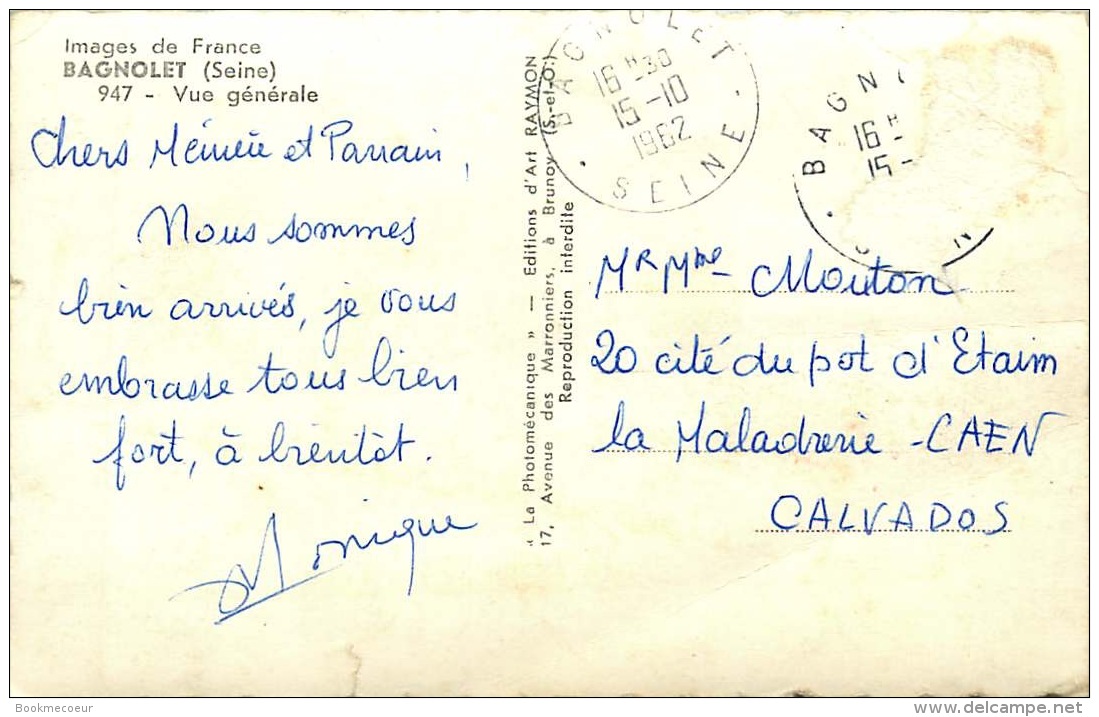 Images de France
BAGNOLET (Seine)
947 - Vue générale
Chers Mémée et Parrain,
Nous sommes
bien arrivés, je vous
embrasse tous bien
fort, à bientôt.
Monique
« La Photomécanique » — Editions d'Art RAYMON
17, Avenue des Marronniers, à Brunoy (S.-et-O.)
Reproduction interdite
BAGNOLET
16H30
15-10
1962
SEINE
BAGN
16H
15-
N
Mr Mme Mouton
20 cité du pot d'Etaim
la Maladrerie - CAEN
CALVADOS
Bookmecoeur
delcampe.net